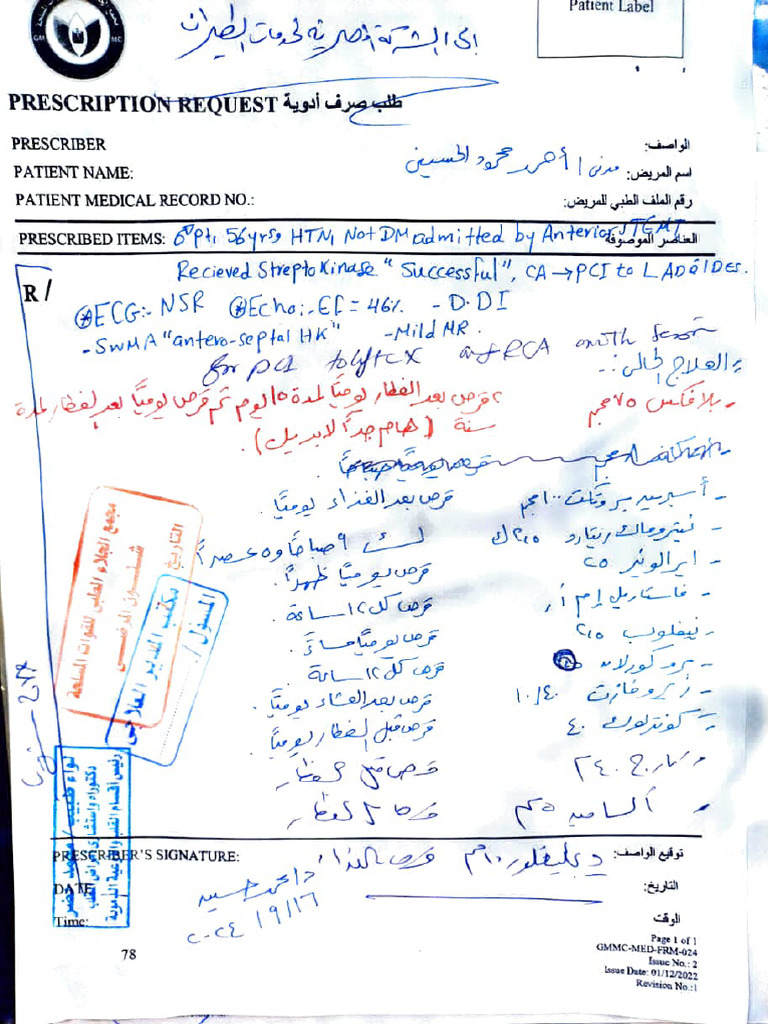 GM MC
Patient Label
الى الشركة المصرية لخدمات الطيران
PRESCRIPTION REQUEST طلب صرف أدوية
PRESCRIBER الواصف:
PATIENT NAME: مدنى / أحمد محمود الحسينى اسم المريض:
PATIENT MEDICAL RECORD NO.: رقم الملف الطبي للمريض:
PRESCRIBED ITEMS: العناصر الموصوفة
♂ Pt, 56 yrs, HTN, Not DM admitted by Anterior STEMI
Recieved StreptoKinase "Successful", CA → PCI to LAD & Des.
R/
ECG:- NSR Echo:- EF = 46% - D.DI
- SWMA "antero-septal HK" - Mild MR.
for PCI to LCX and RCA
العلاج الحالى:-
- بلافكس ٧٥ مجم ٢ قرص بعد الفطار يوميًا لمدة ١٥ يوم ثم قرص يوميًا بعد الفطار لمدة
سنة (هام جدًا لا بديل).
- أسبرين بروتكت ١٠٠ مجم قرص بعد الغذاء يوميًا.
- نيتروماك ريتارد ٢,٥ ك ٩ صباحًا و ٥ عصرًا
٢٥ قرص يوميًا ظهرًا.
- فاستاريل إم أر قرص كل ١٢ ساعة.
- نيفلوب ٢,٥ قرص يوميًا مساءً.
- بروكورلان قرص كل ١٢ ساعة
١٠/٤٠ قرص بعد العشاء يوميًا.
- كونترلوك ٤٠ قرص قبل الفطار يوميًا
قرص قبل الفطار
الفطار
قرص الغذاء
مجمع الجلاء الطبى للقوات المسلحة
شئون المرضى
التاريخ
مكتب المدير العلاجى
المسئول /
PRESCRIBER'S SIGNATURE: توقيع الواصف:
DATE التاريخ:
٢٠٢٤/٩/١٦
Time: الوقت
78
Page 1 of 1
GMMC-MED-FRM-024
Issue No.: 2
Issue Date: 01/12/2022
Revision No.:1